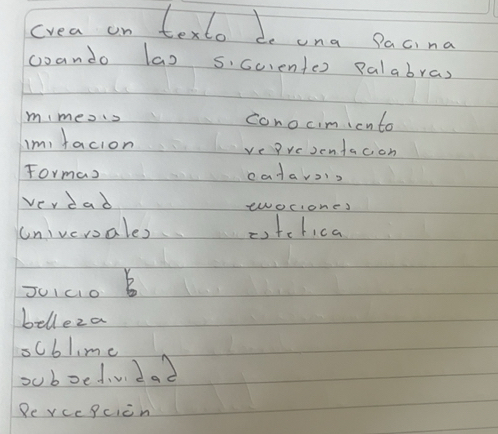 Crea un texto de una Pacina
usando las siguientes Palabras
mimesis
imitacion
Formas
verdad
universales
conocimiento
representacion
catarsis
emociones
estetica
Juicio
belleza
sublime
subjetividad
Percepción